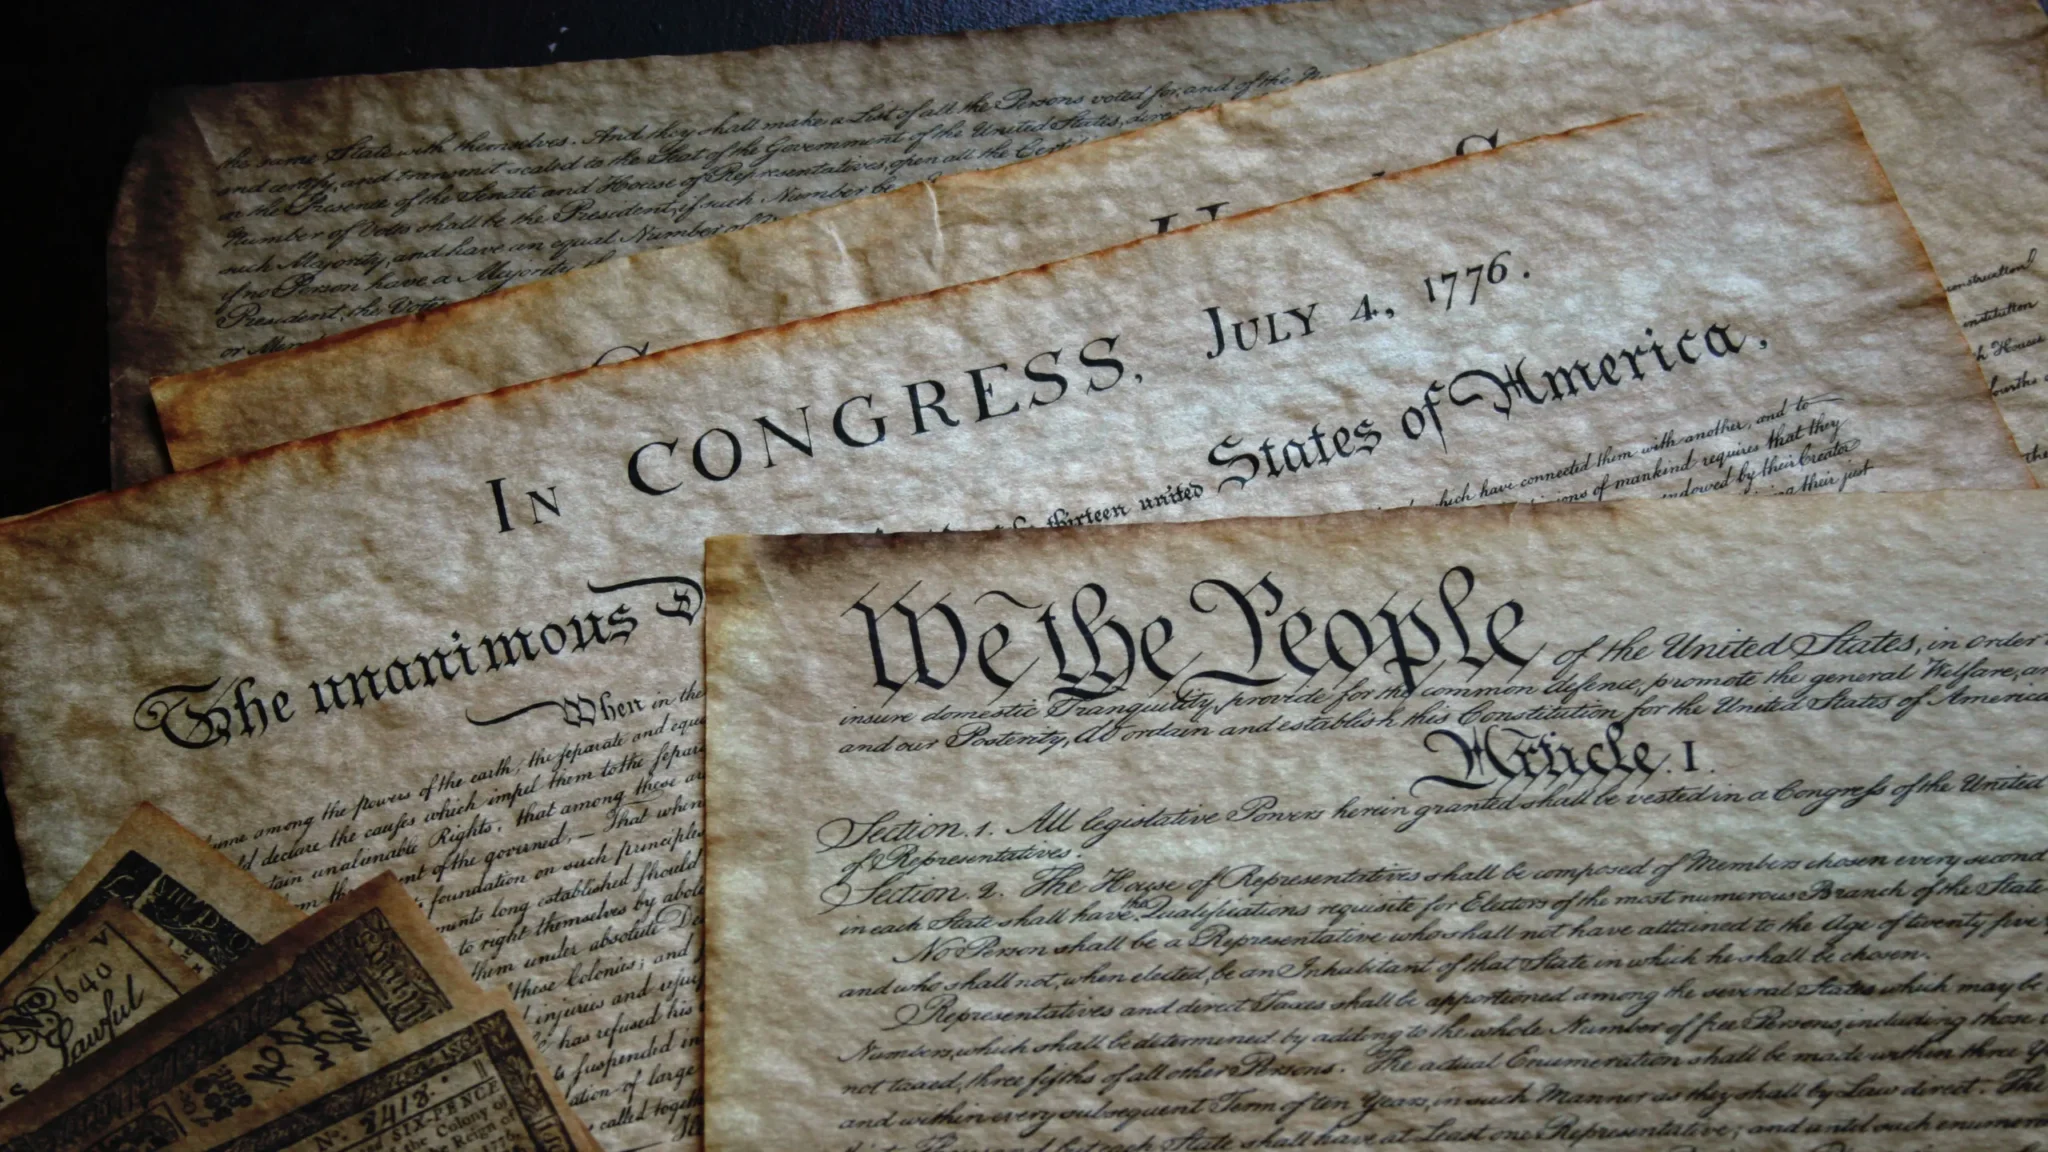 the same State with themselves. And they shall make a List of all the Persons voted for, and of the
and certify, and transmit sealed to the Seat of the Government of the United States, direc
in the Presence of the Senate and House of Representatives, open all the Cert
Number of Votes shall be the President, if such Number be
such Majority, and have an equal Number of
if no Person have a Majority
President, the Votes
or Mem
In CONGRESS, July 4, 1776.
The unanimous D
thirteen united States of America.
When in the
which have connected them with another, and to
ame among the powers of the earth, the separate and equa
ions of mankind requires that they
ld declare the causes which impel them to the separa
endowed by their Creator
tain unalienable Rights, that among these are
their just
ent of the governed, — That when
foundation on such principles
ments long established should
to right themselves by abol
them under absolute De
these Colonies; and
injuries and usurp
has refused his
suspended in
ation of large
called togeth
We the People of the United States, in order
insure domestic Tranquility, provide for the common defence, promote the general Welfare, an
and our Posterity, do ordain and establish this Constitution for the United States of America
Article. I.
Section. 1. All legislative Powers herein granted shall be vested in a Congress of the United
of Representatives.
Section. 2. The House of Representatives shall be composed of Members chosen every second
in each State shall have the Qualifications requisite for Electors of the most numerous Branch of the State
No Person shall be a Representative who shall not have attained to the Age of twenty five
and who shall not, when elected, be an Inhabitant of that State in which he shall be chosen.
Representatives and direct Taxes shall be apportioned among the several States which may be
Numbers, which shall be determined by adding to the whole Number of free Persons, including those
not taxed, three fifths of all other Persons. The actual Enumeration shall be made within three Y
and within every subsequent Term of ten Years, in such Manner as they shall by Law direct. The
Thousand, but each State shall have at Least one Representative; and until such enumera
onstruction
nstitution
h House
fourths
the
640
Lawful
No. 2418.
SIX-PENCE
the Colony of
e Reign of
1776.